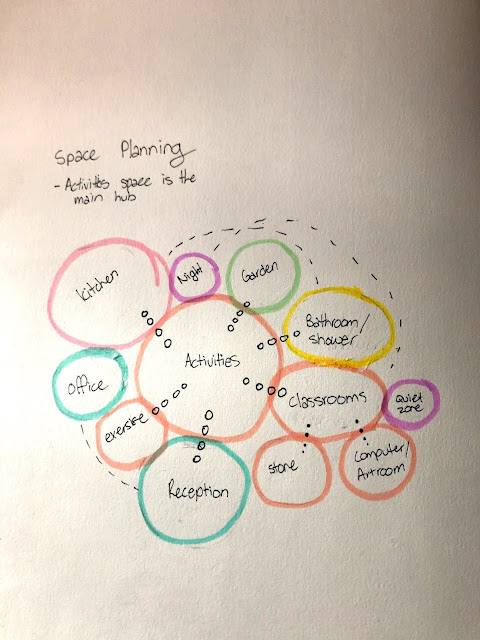 Space Planning
- Activities space is the
main hub
Kitchen
Night
Garden
Bathroom/
shower
Activities
office
Classrooms
Quiet
zone
exersise
Reception
store
Computer/
Art room